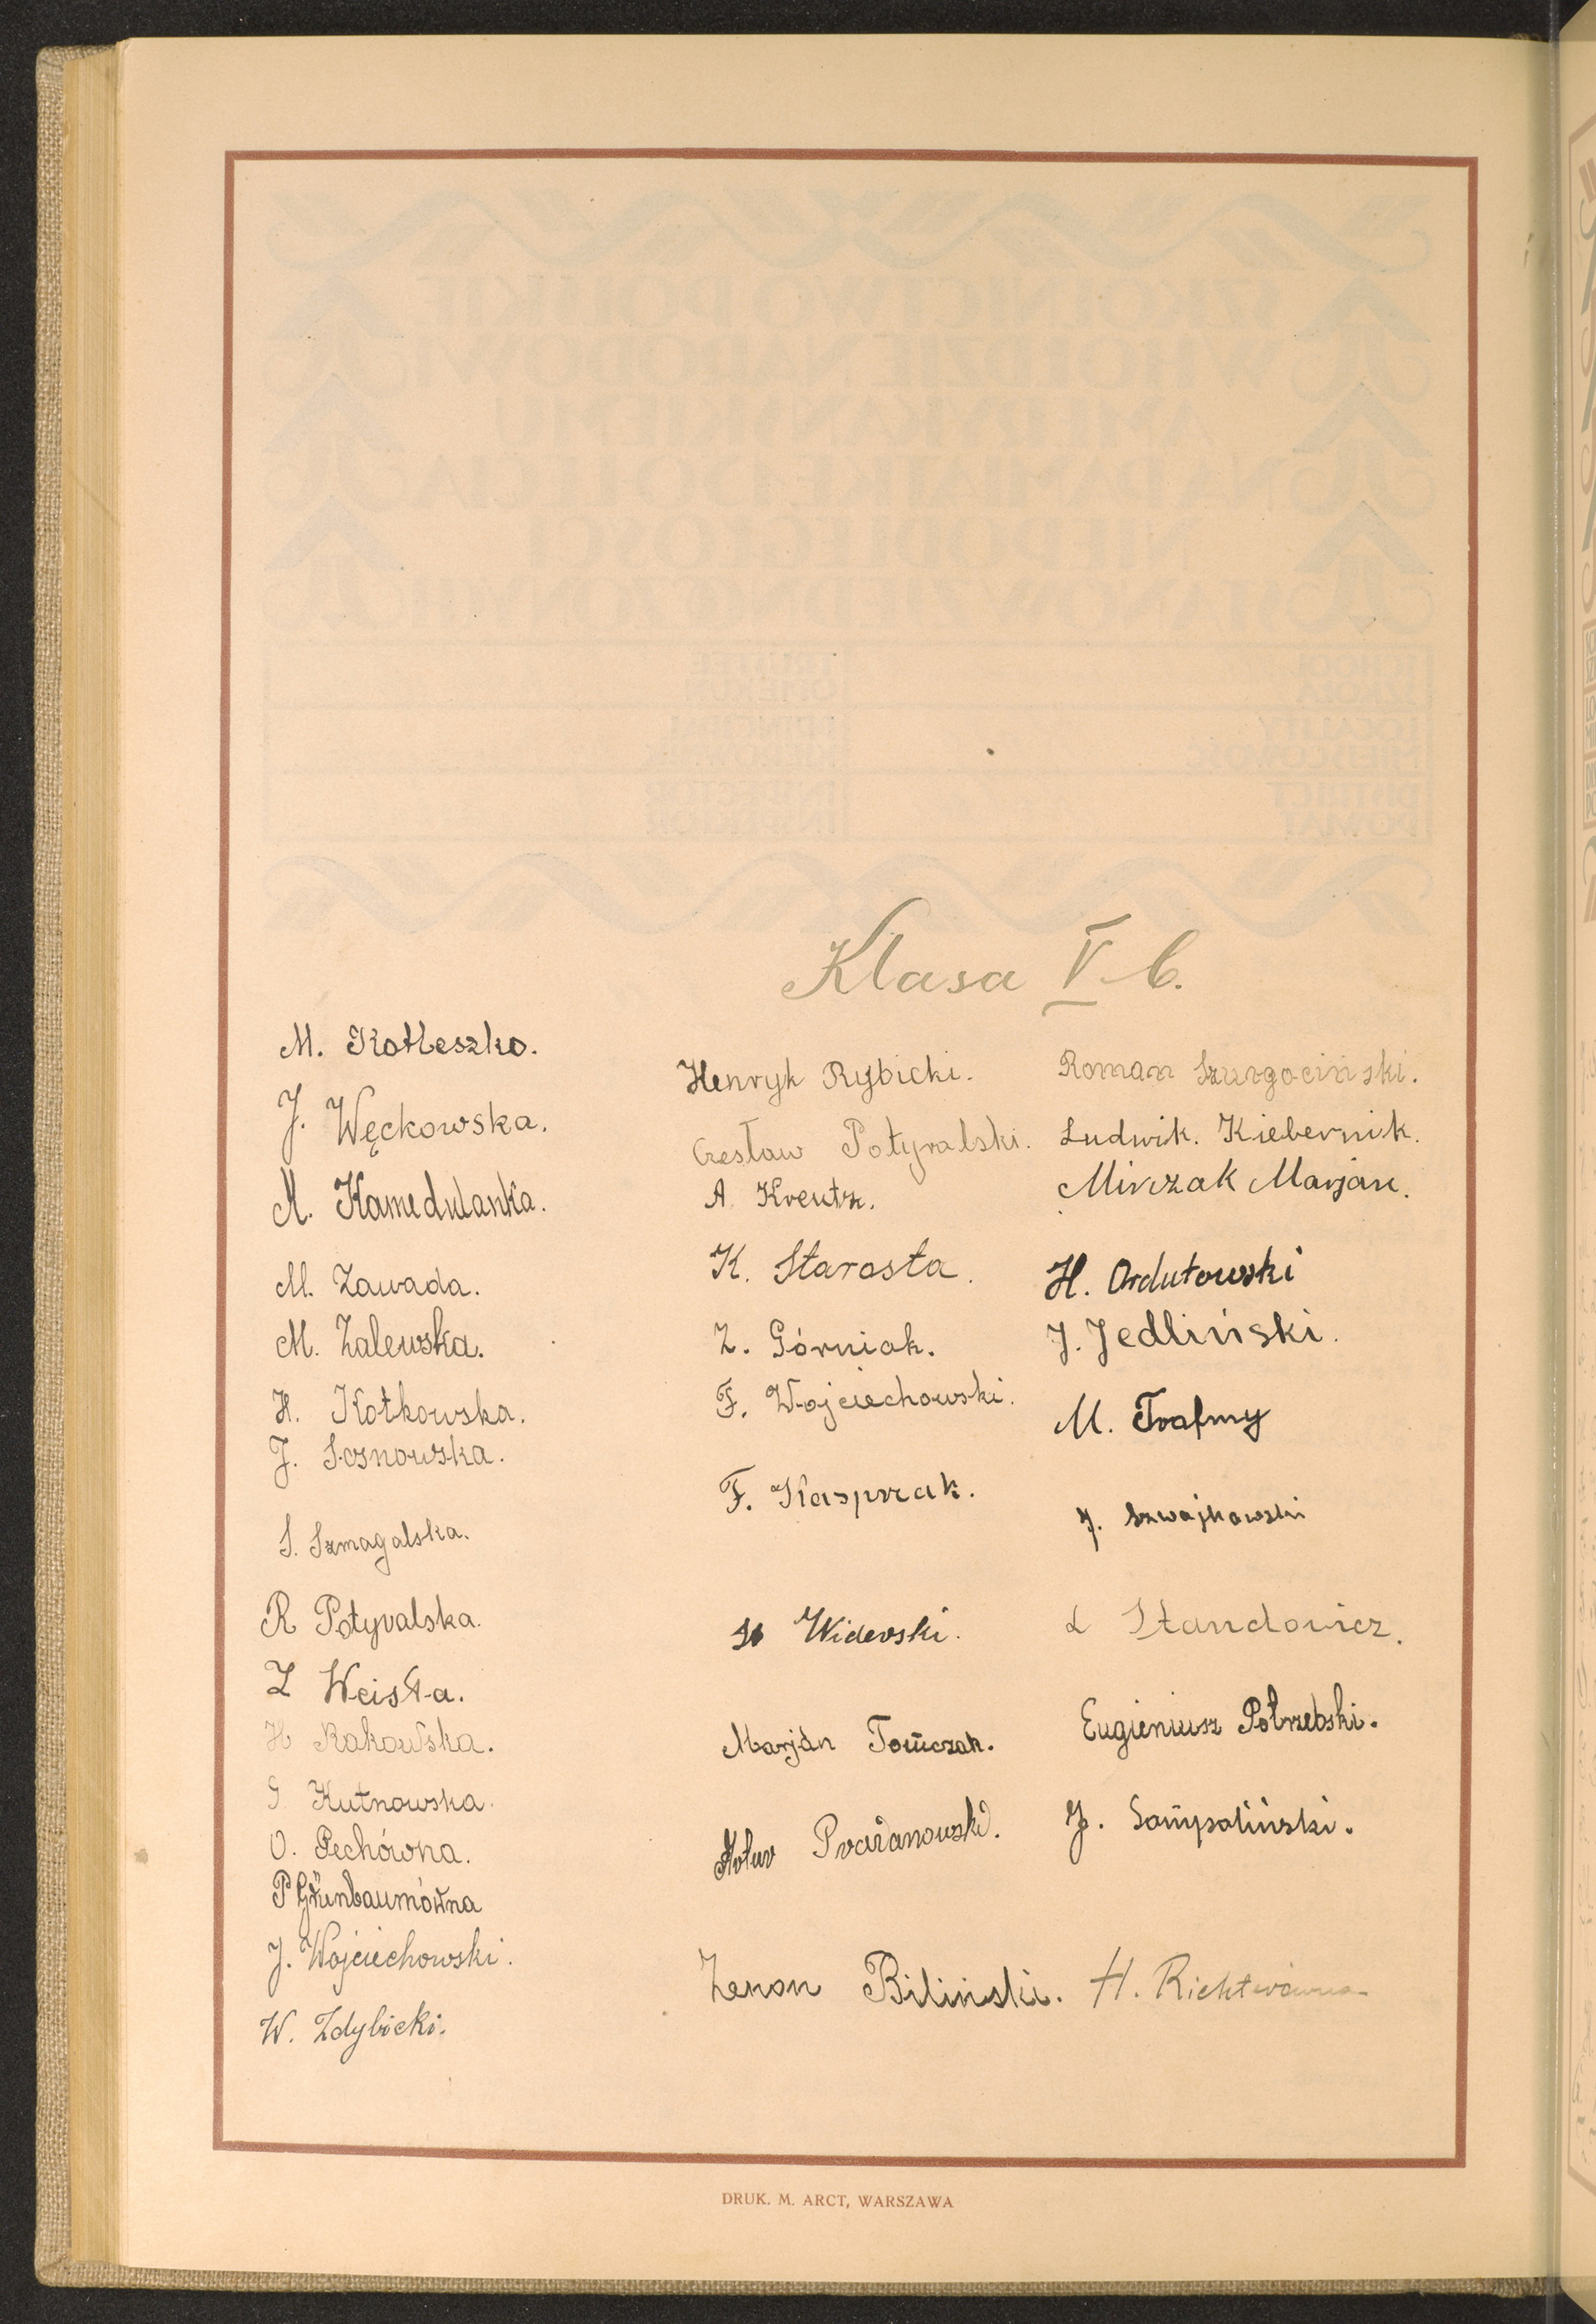 Klasa V b.
M. Kotleszko.
J. Węckowska.
A. Kamedulanka.
M. Zawada.
M. Zalewska.
H. Kotkowska.
J. Sosnowska.
S. Szmagalska.
R Potyralska.
Z Weisła.
H Rakowska.
G Kutnowska.
O. Pechówna.
P Grünbaumówna
J. Wojciechowski.
W. Zdybicki.
Henryk Rybicki.
Czesław Potyralski.
A. Kreutz.
K. Starosta.
Z. Górniak.
F. Wojciechowski.
F. Kasprzak.
Widerski.
Marjan Tomczak.
Artur
Zenon Biliński.
Roman Szurgociński.
Ludwik. Kiebernik.
Mirczak Marjan.
H. Ordutowski
J. Jedliński.
M. Trafny
J. Szwajkowski
L Standowicz.
Eugieniusz Potrzebski.
J. Sampoliński.
H. Richterówna
DRUK. M. ARCT, WARSZAWA